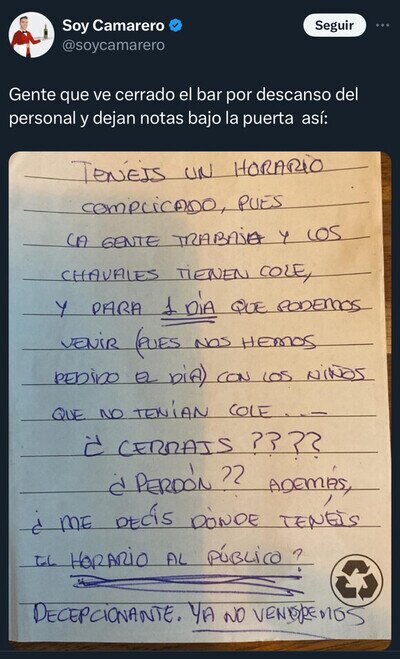 Soy Camarero
@soycamarero
Seguir
Gente que ve cerrado el bar por descanso del
personal y dejan notas bajo la puerta así:
TENÉIS UN HORARIO
COMPLICADO, PUES
LA GENTE TRABAJA Y LOS
CHAVALES TIENEN COLE,
Y PARA 1 DÍA QUE PODEMOS
VENIR (PUES NOS HEMOS
PEDIDO EL DÍA) CON LOS NIÑOS
QUE NO TENÍAN COLE...–
¿CERRAIS????
¿PERDÓN?? ADEMÁS,
¿ME DECÍS DÓNDE TENÉIS
EL HORARIO AL PÚBLICO?
DECEPCIONANTE. YA NO VENDREMOS